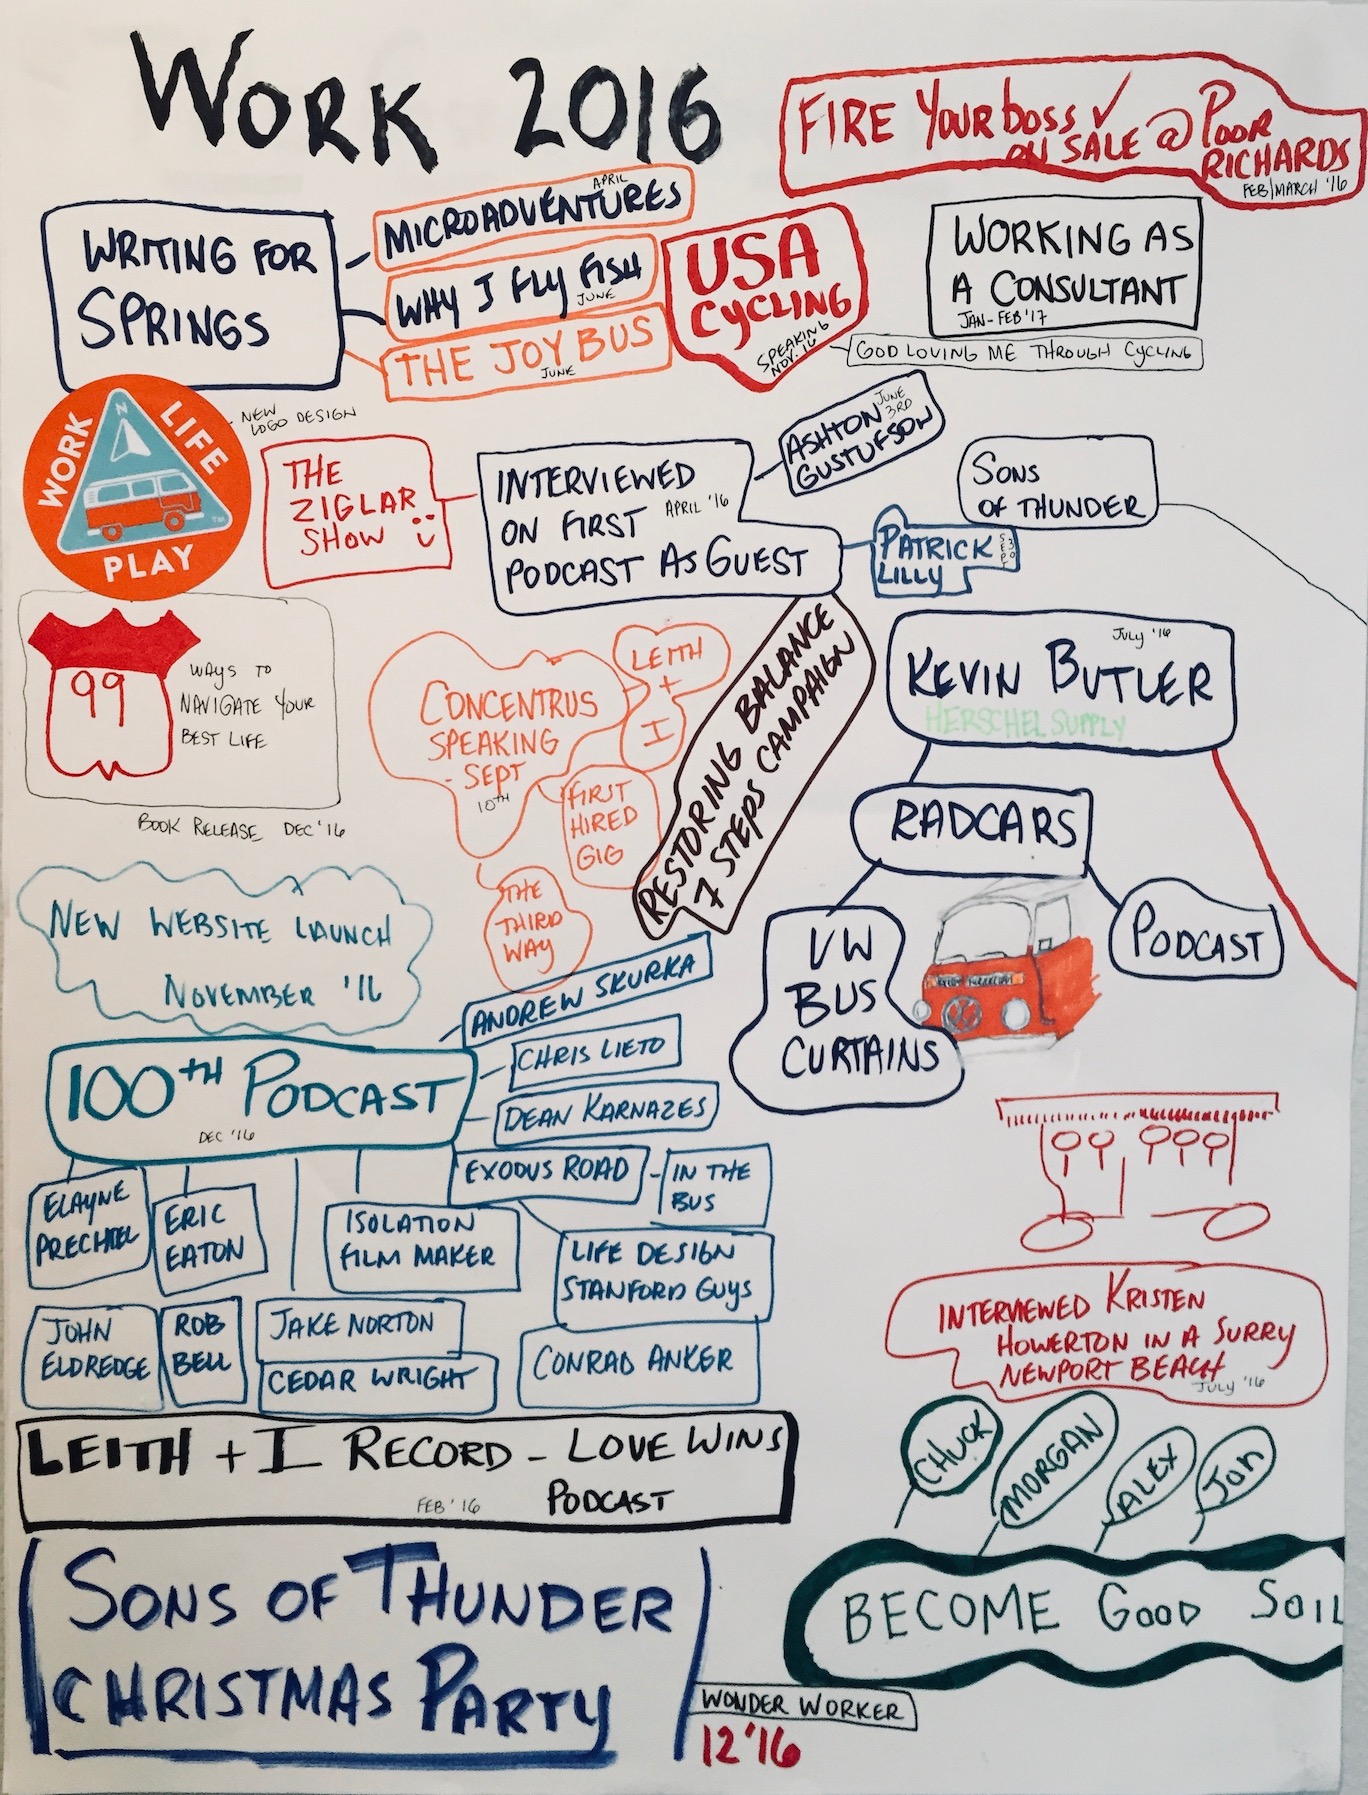 WORK 2016
FIRE YOUR boss ✓
ON SALE @ POOR
RICHARDS
FEB/MARCH '16
WRITING FOR
SPRINGS
APRIL
MICROADVENTURES
WHY I FLY FISH
JUNE
THE JOY BUS
JUNE
USA
CYCLING
SPEAKING
NOV. 16
GOD LOVING ME THROUGH CYCLING
WORKING AS
A CONSULTANT
JAN-FEB '17
WORK LIFE
N
PLAY
TM
NEW
LOGO DESIGN
THE
ZIGLAR
SHOW
INTERVIEWED
APRIL '16
ON FIRST
PODCAST AS GUEST
ASHTON
GUSTUFSON
JUNE
3RD
PATRICK
LILLY
SEPT
30
SONS
OF THUNDER
99
WAYS TO
NAVIGATE YOUR
BEST LIFE
BOOK RELEASE DEC '16
CONCENTRUS
SPEAKING
- SEPT
10TH
LEITH
+
I
FIRST
HIRED
GIG
THE
THIRD
WAY
RESTORING BALANCE
7 STEPS CAMPAIGN
JULY '16
KEVIN BUTLER
HERSCHEL SUPPLY
RADCARS
VW
BUS
CURTAINS
PODCAST
NEW WEBSITE LAUNCH
NOVEMBER '16
100TH PODCAST
DEC '16
ANDREW SKURKA
CHRIS LIETO
DEAN KARNAZES
EXODUS ROAD - IN THE
BUS
ELAYNE
PRECHTEL
ERIC
EATON
ISOLATION
FILM MAKER
LIFE DESIGN
STANFORD GUYS
JOHN
ELDREDGE
ROB
BELL
JAKE NORTON
CEDAR WRIGHT
CONRAD ANKER
INTERVIEWED KRISTEN
HOWERTON IN A SURRY
NEWPORT BEACH
JULY '16
LEITH + I RECORD - LOVE WINS
FEB '16 PODCAST
CHUCK
MORGAN
ALEX
JON
BECOME GOOD SOIL
SONS OF THUNDER
CHRISTMAS PARTY
WONDER WORKER
12'16